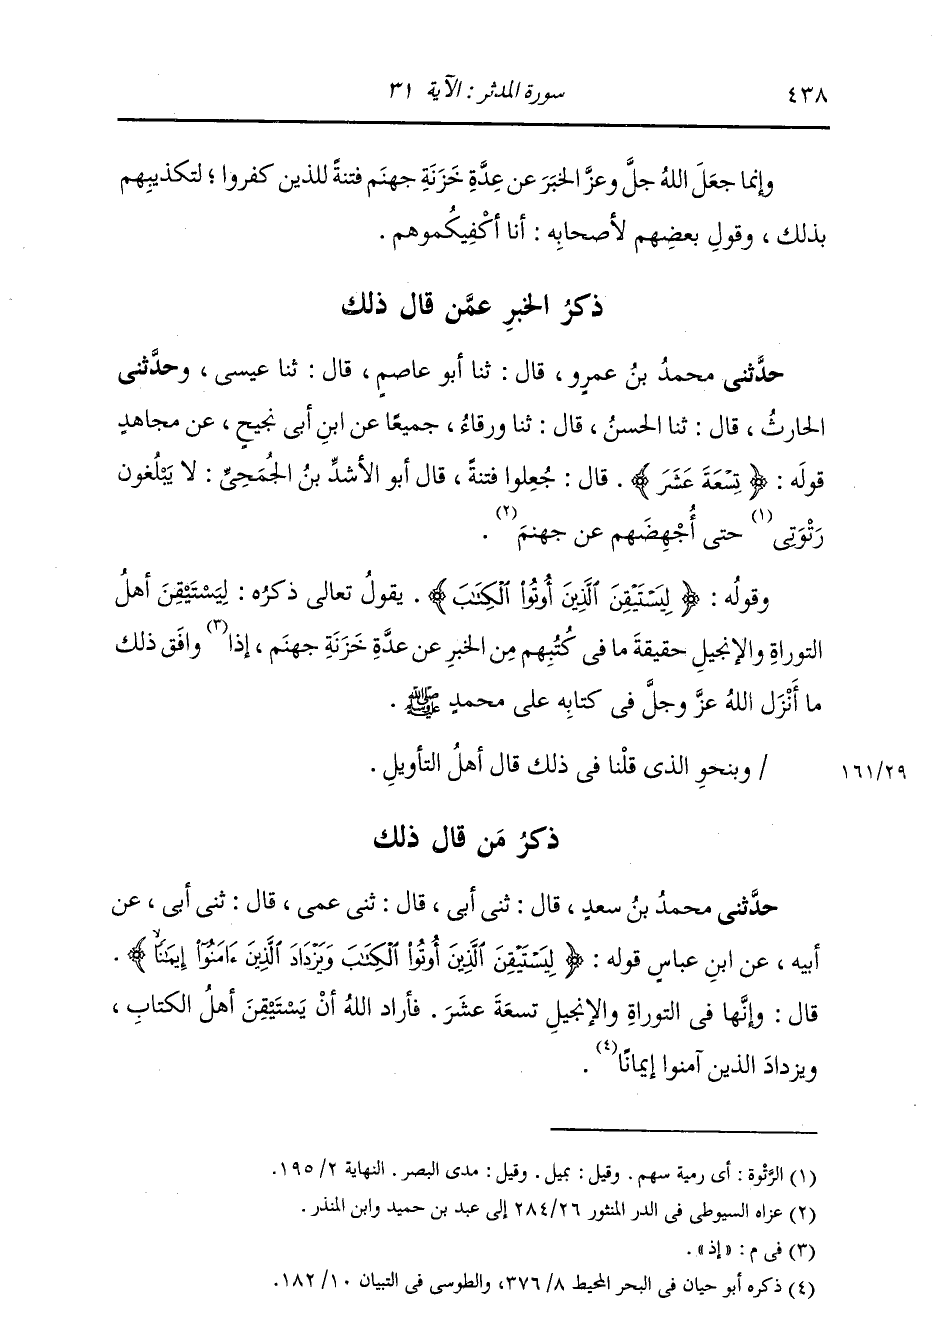 ٤٣٨
سورة المدثر : الآية ٣١
وإنما جعَلَ اللهُ جلَّ وعزَّ الخبَرَ عن عِدَّةِ خَزَنَةِ جهنَم فتنةً للذين كفروا ؛ لتكذيبِهم
بذلك ، وقولِ بعضِهم لأصحابِه : أنا أكْفِيكُموهم .
ذكرُ الخبرِ عمَّن قال ذلك
حدَّثنى محمدُ بنُ عمرٍو ، قال : ثنا أبو عاصمٍ ، قال : ثنا عيسى ، وحدَّثنى
الحارثُ ، قال : ثنا الحسنُ ، قال : ثنا ورقاءُ ، جميعًا عن ابنِ أبى نجيحٍ ، عن مجاهدٍ
قولَه : ﴿ تِسْعَةَ عَشَرَ ﴾ . قال : جُعِلوا فتنةً ، قال أبو الأشدِّ بنُ الجُمَحِىِّ : لا يَبْلُغون
رَتْوَتِى(١) حتى أُجْهِضَهم عن جهنمَ(٢) .
وقولُه : ﴿ لِيَسْتَيْقِنَ ٱلَّذِينَ أُوتُوا۟ ٱلْكِتَٰبَ ﴾ . يقولُ تعالى ذكرُه : لِيَسْتَيْقِنَ أهلُ
التوراةِ والإنجيلِ حقيقةَ ما فى كُتُبِهم مِن الخبرِ عن عدَّةِ خَزَنَةِ جهنَم ، إذا(٣) وافَق ذلك
ما أَنْزَل اللهُ عزَّ وجلَّ فى كتابِه على محمدٍ ﷺ .
/ وبنحوِ الذى قلْنا فى ذلك قال أهلُ التأويلِ .
١٦١/٢٩
ذكرُ مَن قال ذلك
حدَّثنى محمدُ بنُ سعدٍ ، قال : ثنى أبى ، قال : ثنى عمى ، قال : ثنى أبى ، عن
أبيه ، عن ابنِ عباسٍ قوله : ﴿ لِيَسْتَيْقِنَ ٱلَّذِينَ أُوتُوا۟ ٱلْكِتَٰبَ وَيَزْدَادَ ٱلَّذِينَ ءَامَنُوٓا۟ إِيمَٰنًا ﴾ .
قال : وإنَّها فى التوراةِ والإنجيلِ تسعَةَ عشَرَ . فأراد اللهُ أنْ يَسْتَيْقِنَ أهلُ الكتابِ ،
ويزدادَ الذين آمنوا إيمانًا(٤) .
(١) الرَّتْوة : أى رمية سهم . وقيل : بميل . وقيل : مدى البصر . النهاية ٢/ ١٩٥.
(٢) عزاه السيوطى فى الدر المنثور ٢٨٤/٢٦ إلى عبد بن حميد وابن المنذر .
(٣) فى م : «إذ» .
(٤) ذكره أبو حيان فى البحر المحيط ٨/ ٣٧٦، والطوسى فى التبيان ١٠/ ١٨٢.